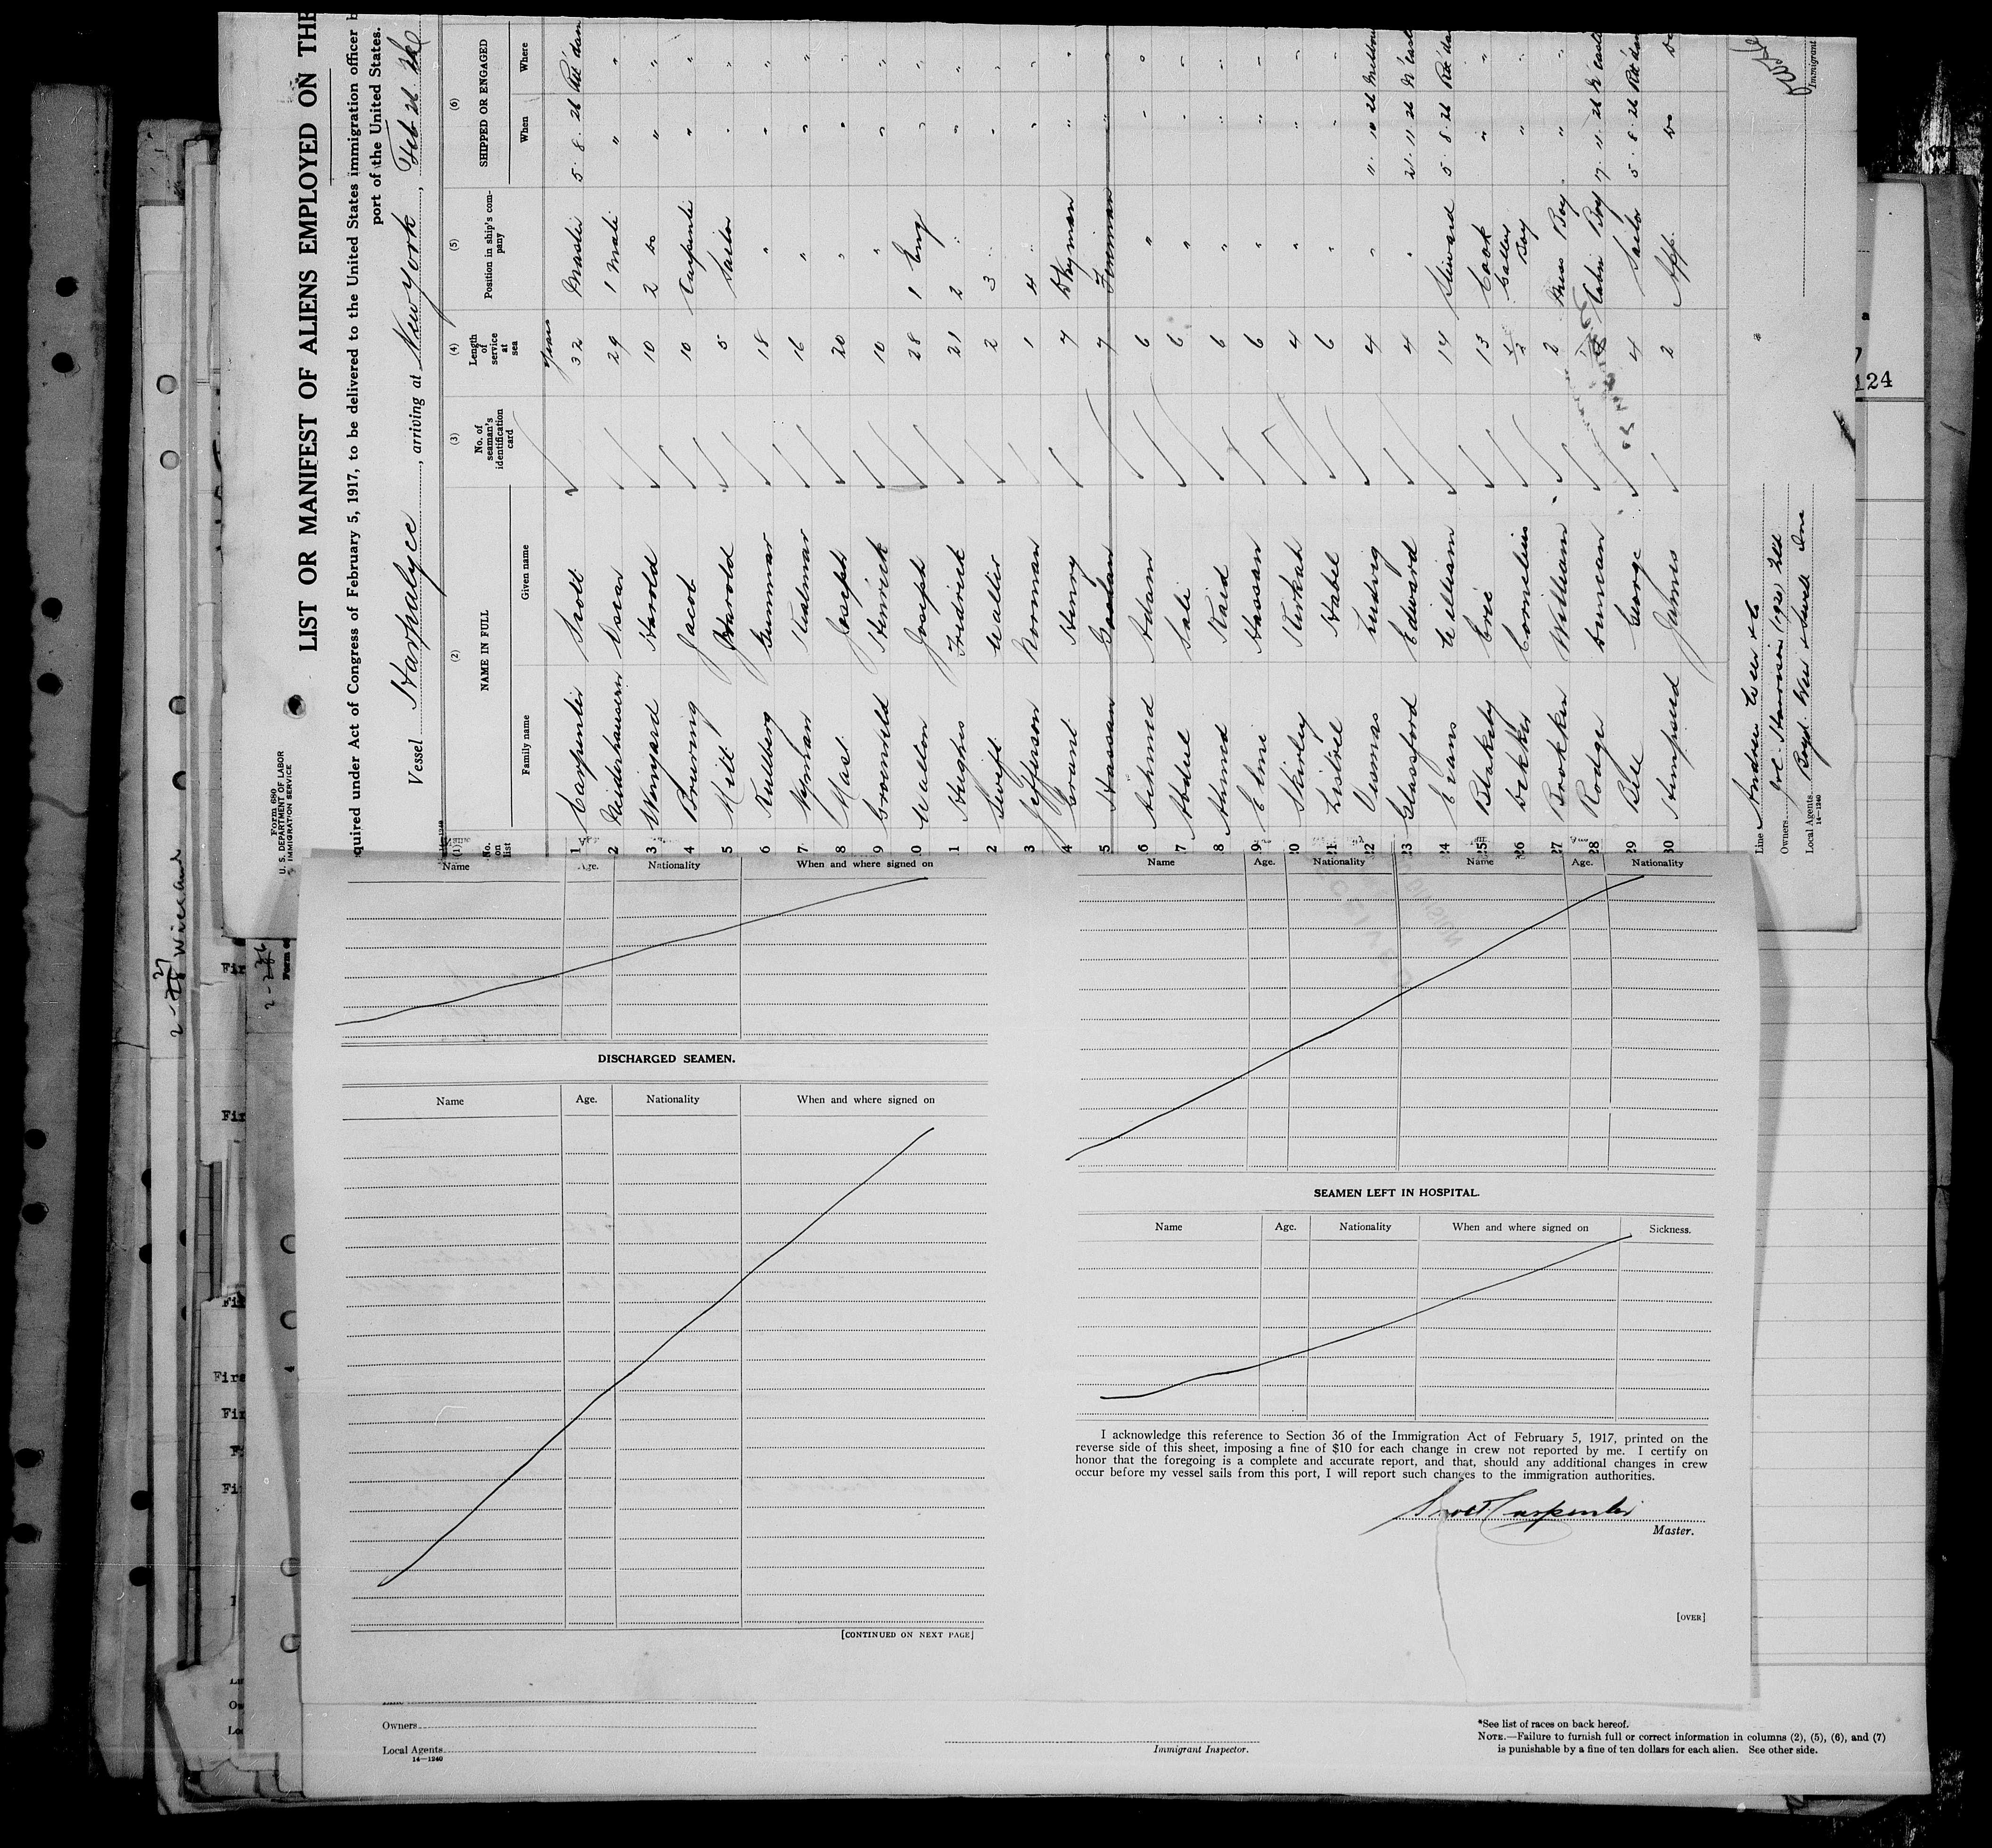 Form 680
U. S. DEPARTMENT OF LABOR
IMMIGRATION SERVICE
LIST OR MANIFEST OF ALIENS EMPLOYED ON THE
quired under Act of Congress of February 5, 1917, to be delivered to the United States immigration officer b
port of the United States.
Vessel Harpalyce, arriving at New York, Feb 26
(1) (2) (3) (4) (5) (6)
No. on list NAME IN FULL No. of seaman's identification card Length of service at sea Position in ship's company SHIPPED OR ENGAGED
Family name Given name When Where
Years
1 Carpenter Scott 32 Master 5. 8. 26 Rott'dam
2 Oscar 29 1 Mate " "
3 Weingard Harold 10 2 do " "
4 Bruning Jacob 10 Carpenter " "
5 Harold 5 Sailor " "
6 Kullberg Gunnar 18 " " "
7 Nyman Kalmar 16 " " "
8 Mast Joseph 20 " " "
9 Groenveld Henrich 10 " " "
0 Wallen Joseph 28 1 Eng " "
1 Hughes Fredrick 21 2 " " "
2 Swift Walter 2 3 " " "
3 Jefferson Norman 1 4 " " "
4 Grant Henry 7 Dkyman " "
5 Hassan 7 Fireman " "
6 Achmed Adam 6 " " "
7 Abdul Sali 6 " " "
8 Ahmed Kaid 6 " " "
9 Elmi Hassan 6 " " "
20 Skirley 4 " " "
21 6 " " "
22 Ludwig 4 " 11. 10 26
23 Glassford Edward 4 " 21. 11 26 N'castl
24 Evans William 14 Steward 5. 8. 26 Rott'da
25 Blakeby Eric 13 Cook " "
26 Dekker Cornelius 1/2 Galley Boy " "
27 Brokken William 2 Mess Boy " "
28 Rodge Duncan Cabin Boy 17. 11. 26 N'castl
29 Bell George 4 Sailor 5. 8. 26 Rott'dam
30 Humpseed James 2 App. do do
Line Andrew Weir & Co
Owners J & C Harrison (1920) Ltd
Local Agents Boyd Weir & Sewell Inc
14—1240
Immigrant
124
Name Age. Nationality When and where signed on
DISCHARGED SEAMEN.
Name Age. Nationality When and where signed on
[CONTINUED ON NEXT PAGE]
Name Age. Nationality Name Age. Nationality
SEAMEN LEFT IN HOSPITAL.
Name Age. Nationality When and where signed on Sickness.
I acknowledge this reference to Section 36 of the Immigration Act of February 5, 1917, printed on the
reverse side of this sheet, imposing a fine of $10 for each change in crew not reported by me. I certify on
honor that the foregoing is a complete and accurate report, and that, should any additional changes in crew
occur before my vessel sails from this port, I will report such changes to the immigration authorities.
Scott Carpenter
Master.
[OVER]
Owners
Local Agents
14—1240
Immigrant Inspector.
*See list of races on back hereof.
NOTE.—Failure to furnish full or correct information in columns (2), (5), (6), and (7)
is punishable by a fine of ten dollars for each alien. See other side.